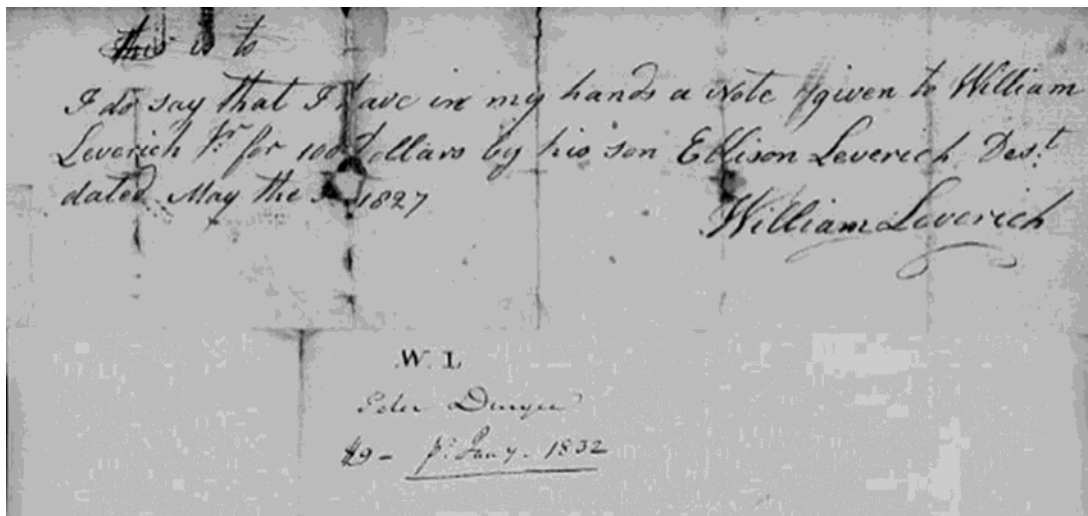 This is to
I do say that I have in my hands a Note given to William
Leverich Jr. for 100 Dollars by his son Ellison Leverich Des.t
dated May the 1827
William Leverich
W. L
Peter Duryee
$9 - Jany. 1832